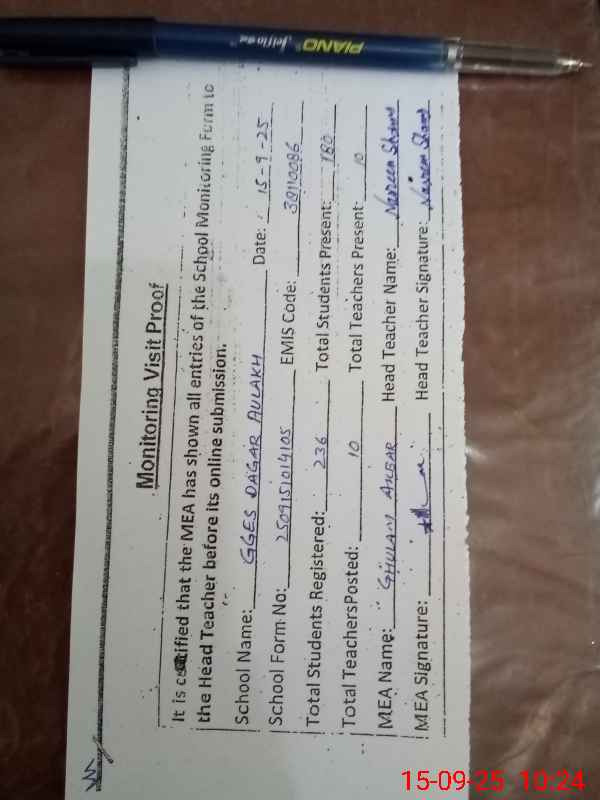 PIANO Jetflo
Monitoring Visit Proof
It is certified that the MEA has shown all entries of the School Monitoring Form to
the Head Teacher before its online submission.
School Name: GGES DAGAR AULAKH Date: 15-9-25
School Form No: 2509151014105 EMIS Code: 38110086
Total Students Registered: 236 Total Students Present: 180
Total TeachersPosted: 10 Total Teachers Present: 10
MEA Name: GHULAM AKBAR Head Teacher Name: Nasreen
MEA Signature: Head Teacher Signature: Nasreen
15-09-25 10:24